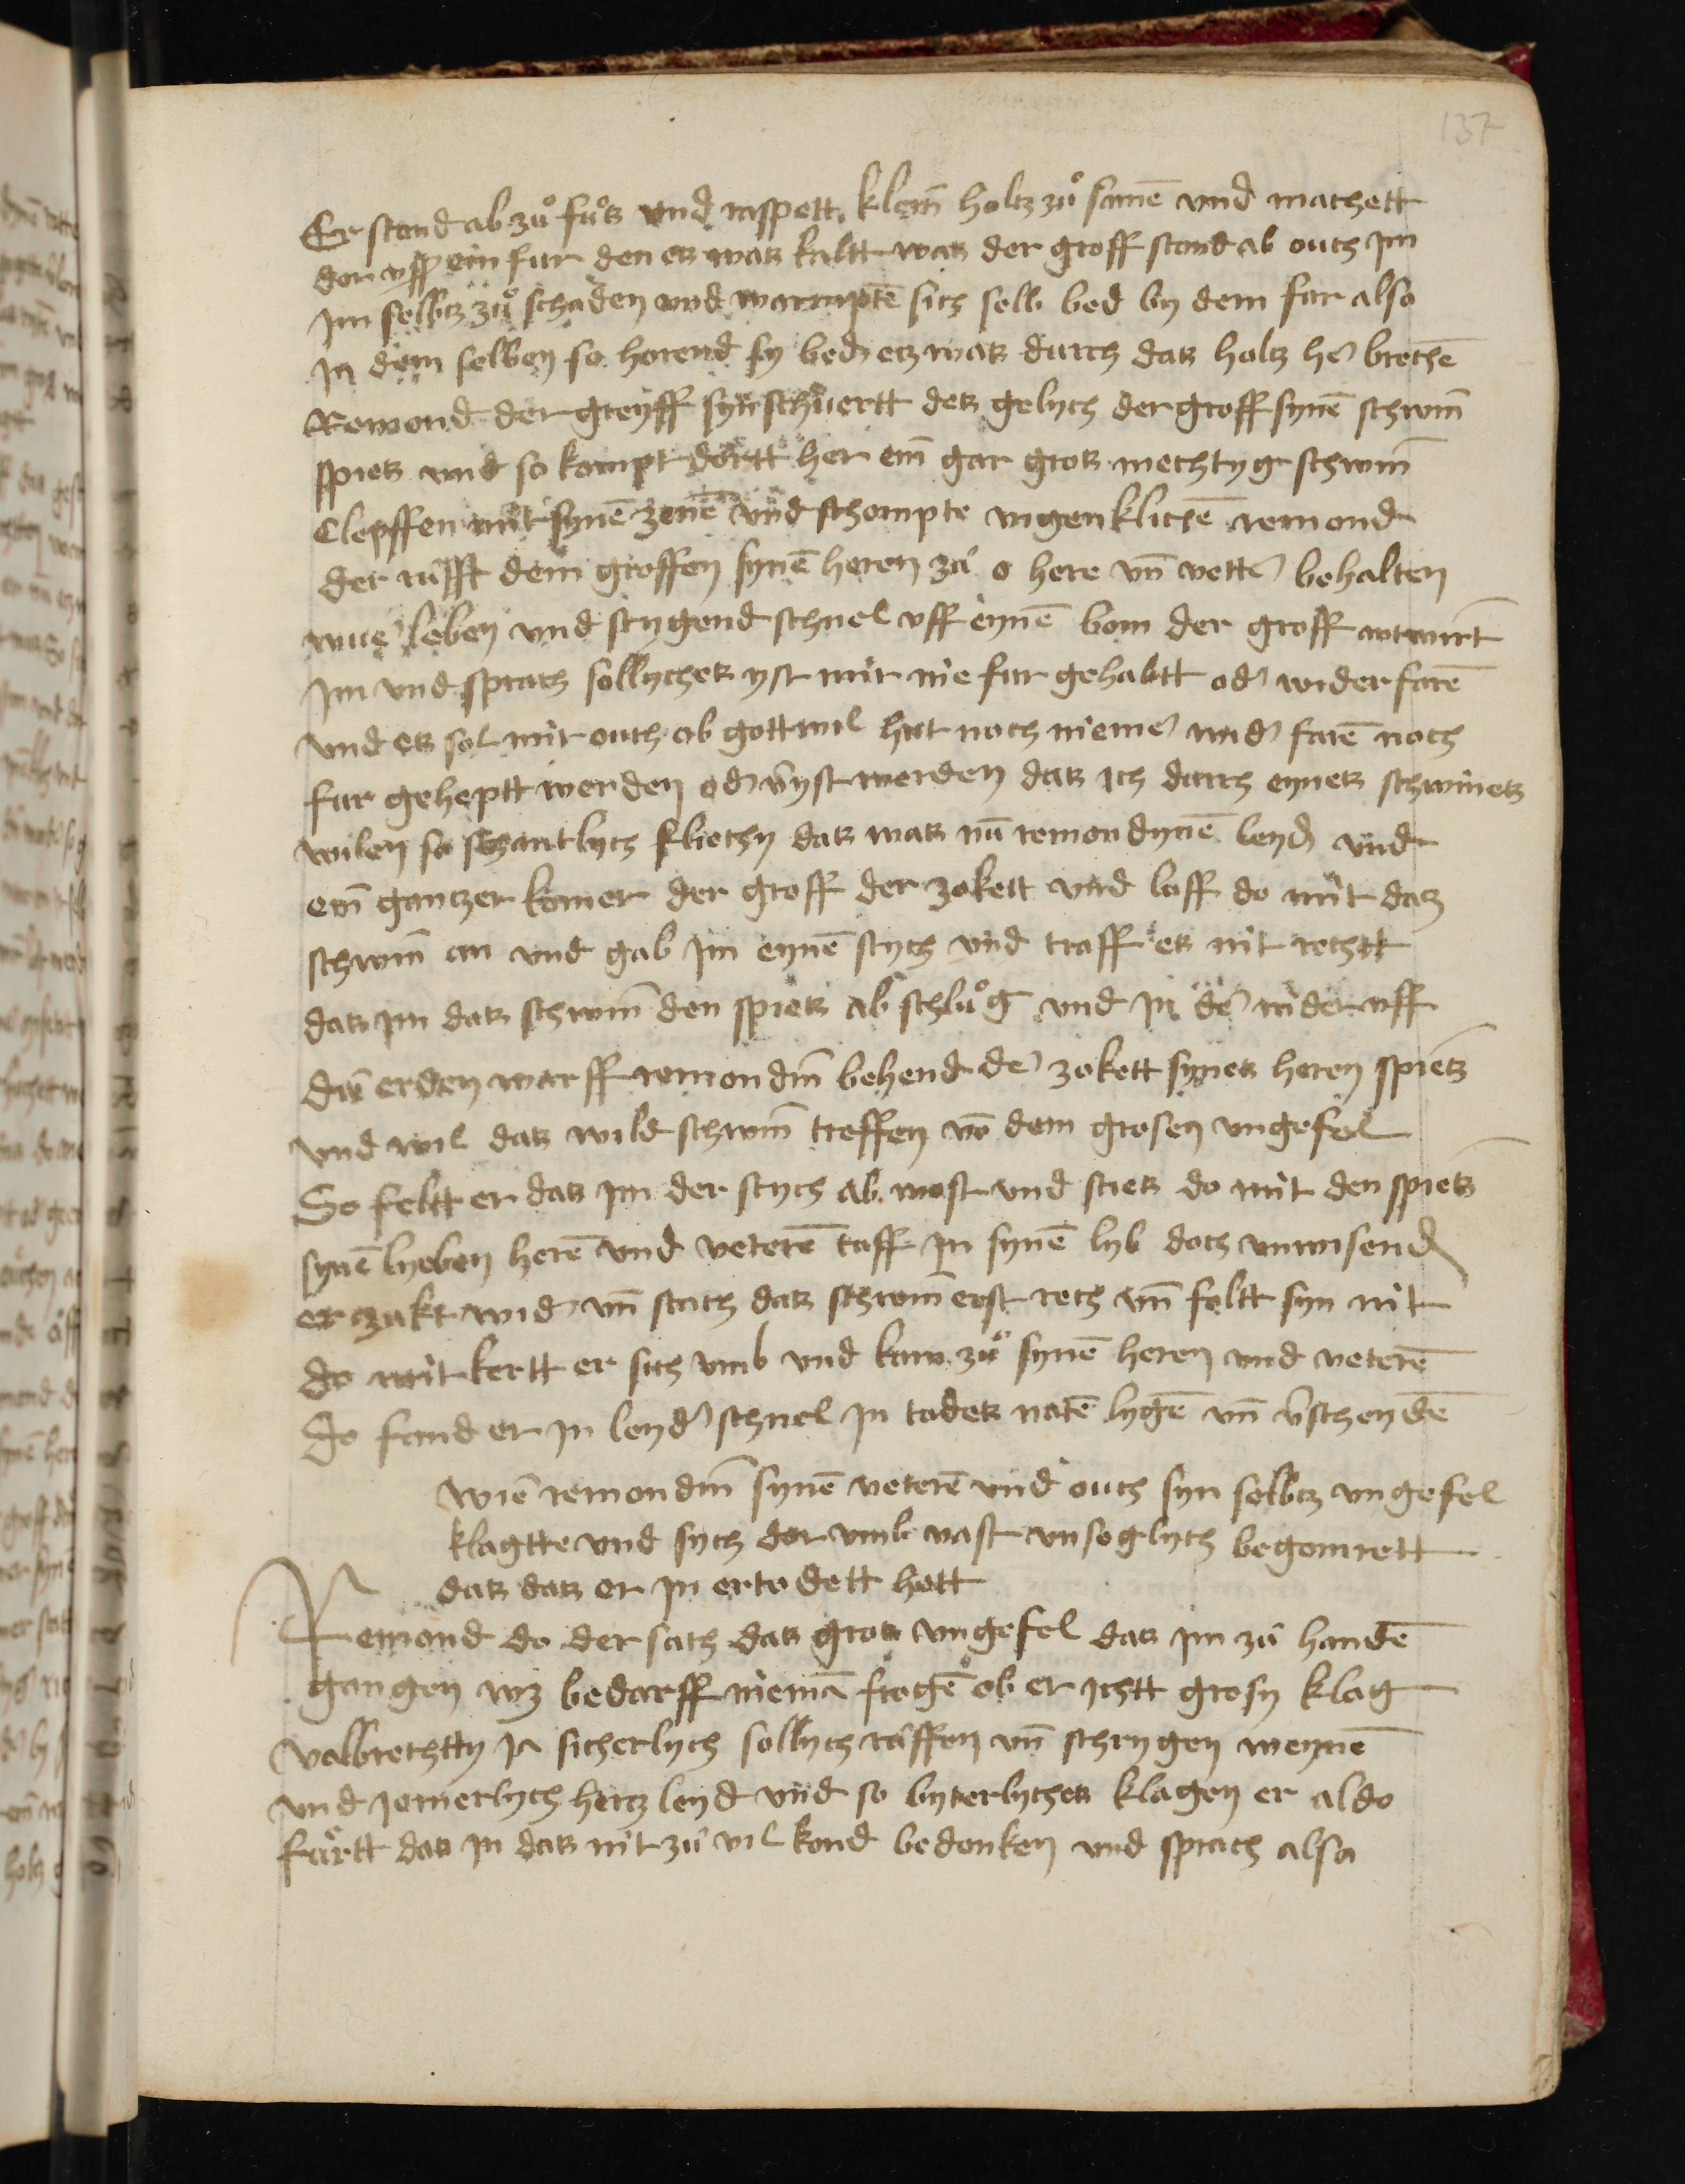 137
Er stand ab zuͦ fuͦß vnd raspett klein̄ holtz zuͦ samē vnd machett
dor vff ein fur den es waß kaltt waß der groff stand ab ouch im
im selbtz zuͦ schaden vnd warmptē sich selb bed by dem fur also
In dem selben so horend sy bed etzwaß durch daß holtz he brechē
Remond der greyff syn schwertt deß gelych der groff synē schwin̄
spieß vnd so kompt dortt her ein̄ gar groß mechtyg schwin̄
Clepffen mit synē zenē vnd schompte vngenklichē remond
der rufft dem groffen synē heren zu o here vn̄ vette behalten
wue leben vnd stygend schnel vff eynē bom der groff antwirt
Im vnd sprach sollycheß yst mir nie fur gehabtt od widerfarē
vnd eß sol mir ouch ob gott wil hut noch nieme wid farē noch
fur geheptt werden od v̄yst werden daß ich durch eyneß schwineß
wilen so schantlych fliechy daß waß nū remondynē leyd vnd
ein̄ gantzer komer der groff der zokett vnd loff do mit daß
schwin̄ an vnd gab im eynē stych vnd traff eß nit rechtt
daß im daß schwin̄ den spieß ab schluͦg vnd in de nider vff
die erden warff remondin̄ behend de zokett syneß heren spieß
vnd wil daß wild schwin̄ treffen vō dem grosen vngefel
So feltt er daß im der stych ab wast vnd stieß do mit den spieß
synē lyeben herē vnd veterē taff in synē lyb doch vnwisend
er zukt wid vn̄ stach daß schwin̄ erst rech vn̄ feltt syn nit
do mit kertt er sich vmb vnd kam zuͦ synē heren vnd veterē
Do fand er in leyd schnel in todeß notē lygē vn̄ v̄scheydē
wie remondin̄ synē veterē vnd ouch syn selbtz vngefel
klagtte vnd sych dor vmb vast vnsoglych begomrett
daß daß er in ertodett hett
Remond do der sach daß groß vngefel daß im zu handē
gangen wz bedarff niemā frogē ob er ichtt grosy klag
volbrechtty ja sicherlych sollych ruffen vn̄ schrygen weynē
vnd jomerlych hertz leyd vnd so byterlycheß klagen er aldo
fuͦrtt daß in daß nit zu vil kond bedonken vnd sprach also